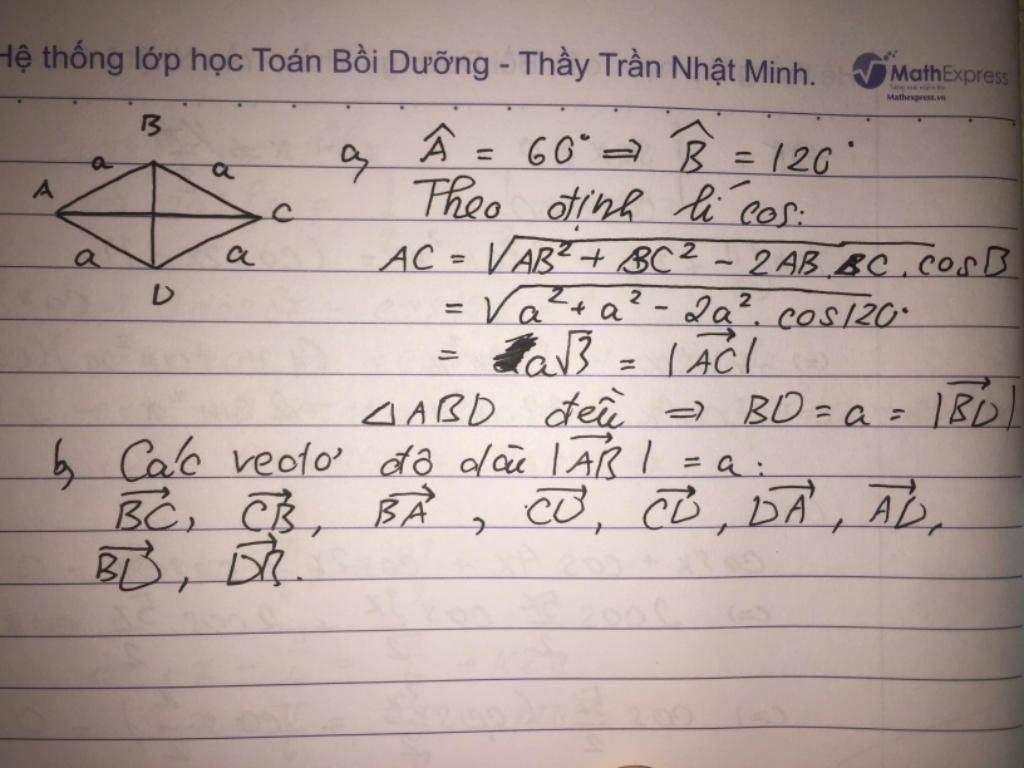 Hệ thống lớp học Toán Bồi Dưỡng - Thầy Trần Nhật Minh.
MathExpress
Mathexpress.vn
B
a a
A C
a a
D
a, Â = 60° ⇒ B̂ = 120°
Theo định lí cos:
AC = √(AB² + BC² - 2AB.BC.cosB)
= √(a² + a² - 2a².cos120°)
= a√3 = |AC⃗|
△ABD đều ⇒ BD = a = |BD⃗|
b, Các vectơ độ dài |AB⃗| = a:
BC⃗, CB⃗, BA⃗, CD⃗, CD⃗, DA⃗, AD⃗,
BD⃗, DB⃗.